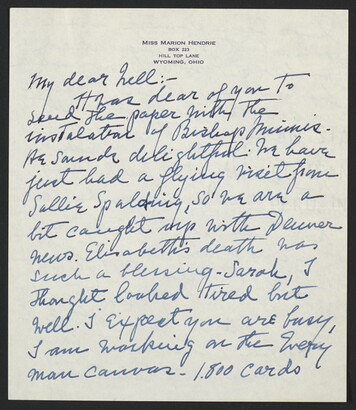 MISS MARION HENDRIE
BOX 221
HILL TOP LANE
WYOMING, OHIO
My dear Nell:-
It was dear of you to
send the paper with the
instalation of Bishop Minnis.
He sounds delightful. We have
just had a flying visit from
Sallie Spalding, so we are a
bit caught up with Denver
news. Elizabeth's death was
such a blessing - Sarah, I
thought looked tired but
well. I expect you are busy,
I am working on the Every
man canvas - 1,800 cards